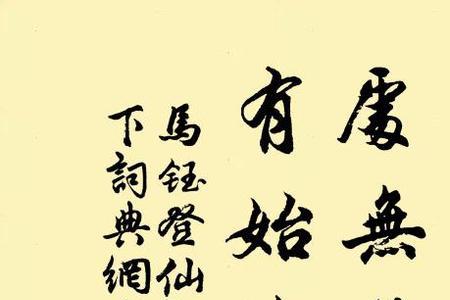 處無
有始
馬鈺登仙
下詞典網